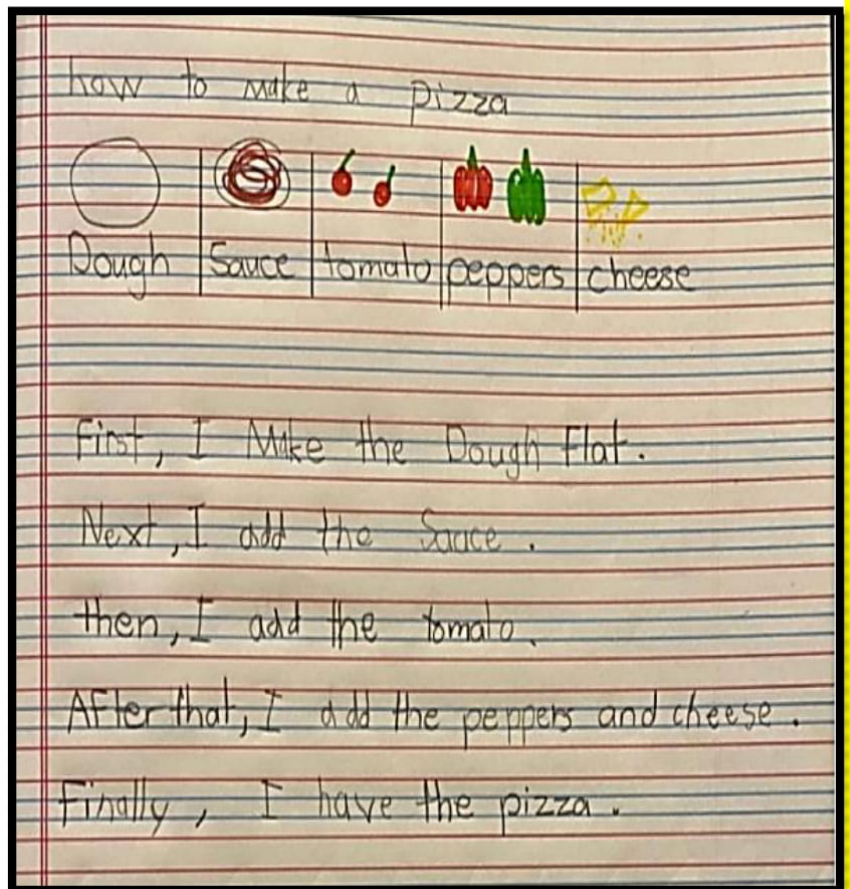 how to make a pizza
Dough Sauce tomato peppers cheese
First, I Make the Dough flat.
Next, I add the Sauce.
then, I add the tomato.
After that, I add the peppers and cheese.
Finally, I have the pizza.